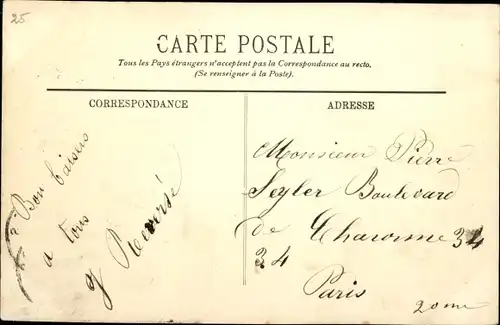 25
CARTE POSTALE
Tous les Pays étrangers n'acceptent pas la Correspondance au recto.
(Se renseigner à la Poste).
CORRESPONDANCE
ADRESSE
Bon baisers
a tous
Monsieur Pierre
Seyler Boulevard
de Charonne 34
34
Paris
20me